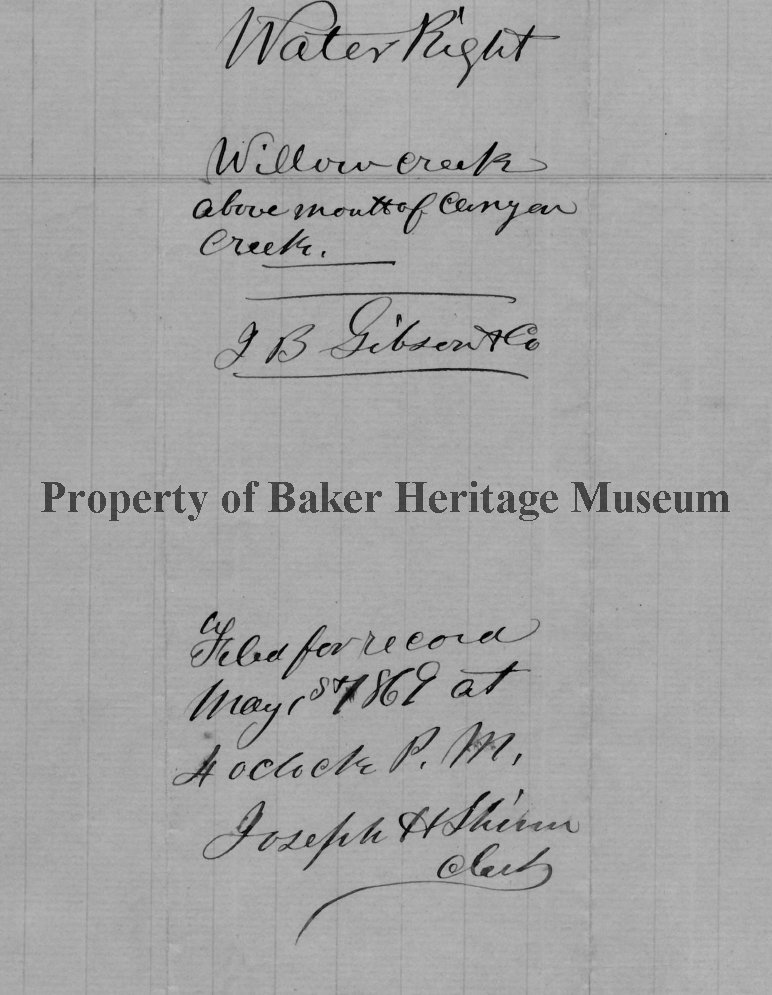 Water Right
Willow creek
above mouth of Canyon
Creek.
J B Gibson & Co
Property of Baker Heritage Museum
Filed for record
May 1st 1869 at
4 oclock P. M.
Joseph H Shinn
Clerk